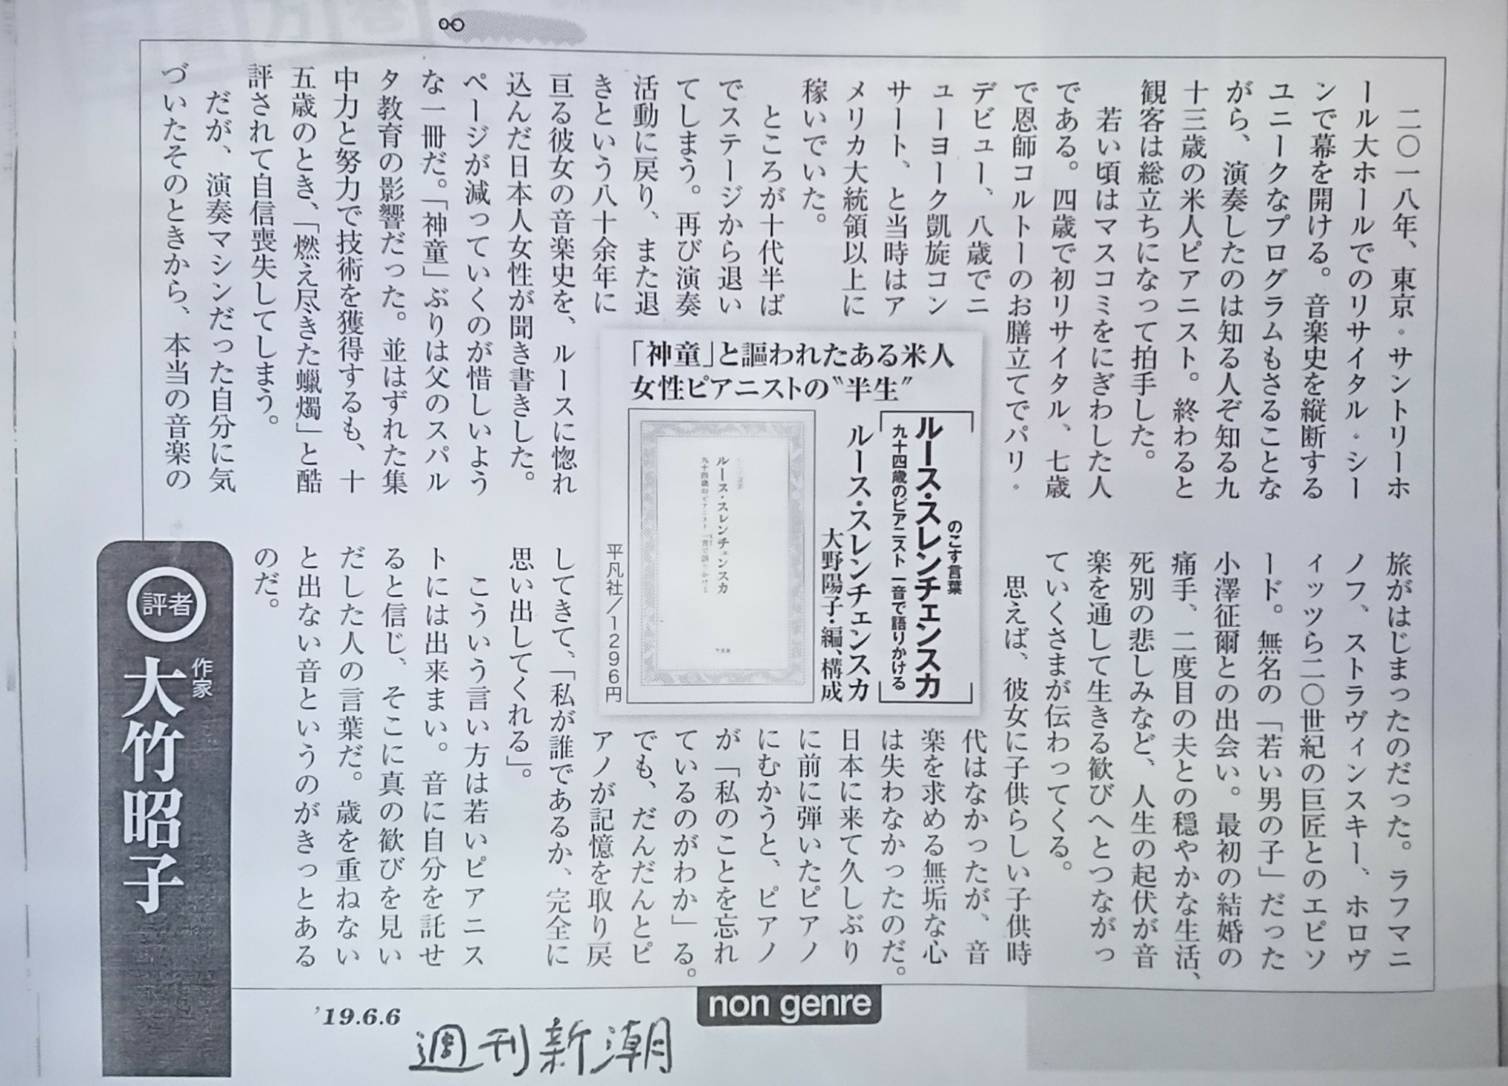 二〇一八年、東京・サントリーホ
ール大ホールでのリサイタル・シー
ンで幕を開ける。音楽史を縦断する
ユニークなプログラムもさることな
がら、演奏したのは知る人ぞ知る九
十三歳の米人ピアニスト。終わると
観客は総立ちになって拍手した。
若い頃はマスコミをにぎわした人
である。四歳で初リサイタル、七歳
で恩師コルトーのお膳立てでパリ・
デビュー、八歳でニ
ューヨーク凱旋コン
サート、と当時はア
メリカ大統領以上に
稼いでいた。
ところが十代半ば
でステージから退い
てしまう。再び演奏
活動に戻り、また退
きという八十余年に
亘る彼女の音楽史を、ルースに惚れ
込んだ日本人女性が聞き書きした。
ページが減っていくのが惜しいよう
な一冊だ。「神童」ぶりは父のスパル
タ教育の影響だった。並はずれた集
中力と努力で技術を獲得するも、十
五歳のとき、「燃え尽きた蠟燭」と酷
評されて自信喪失してしまう。
だが、演奏マシンだった自分に気
づいたそのときから、本当の音楽の
旅がはじまったのだった。ラフマニ
ノフ、ストラヴィンスキー、ホロヴ
ィッツら二〇世紀の巨匠とのエピソ
ード。無名の「若い男の子」だった
小澤征爾との出会い。最初の結婚の
痛手、二度目の夫との穏やかな生活、
死別の悲しみなど、人生の起伏が音
楽を通して生きる歓びへとつながっ
ていくさまが伝わってくる。
思えば、彼女に子供らしい子供時
代はなかったが、音
楽を求める無垢な心
は失わなかったのだ。
日本に来て久しぶり
に前に弾いたピアノ
にむかうと、ピアノ
が「私のことを忘れ
ているのがわか」る。
でも、だんだんとピ
アノが記憶を取り戻
してきて、「私が誰であるか、完全に
思い出してくれる」。
こういう言い方は若いピアニス
トには出来まい。音に自分を託せ
ると信じ、そこに真の歓びを見い
だした人の言葉だ。歳を重ねない
と出ない音というのがきっとある
のだ。
「神童」と謳われたある米人
女性ピアニストの〝半生〟
のこす言葉
ルース・スレンチェンスカ
九十四歳のピアニスト 一音で語りかける
ルース・スレンチェンスカ
大野陽子・編、構成
ルース・スレンチェンスカ
九十四歳のピアニスト 一音で語りかける
平凡社/1296円
評者
作家
大竹昭子
non genre
'19.6.6
週刊新潮